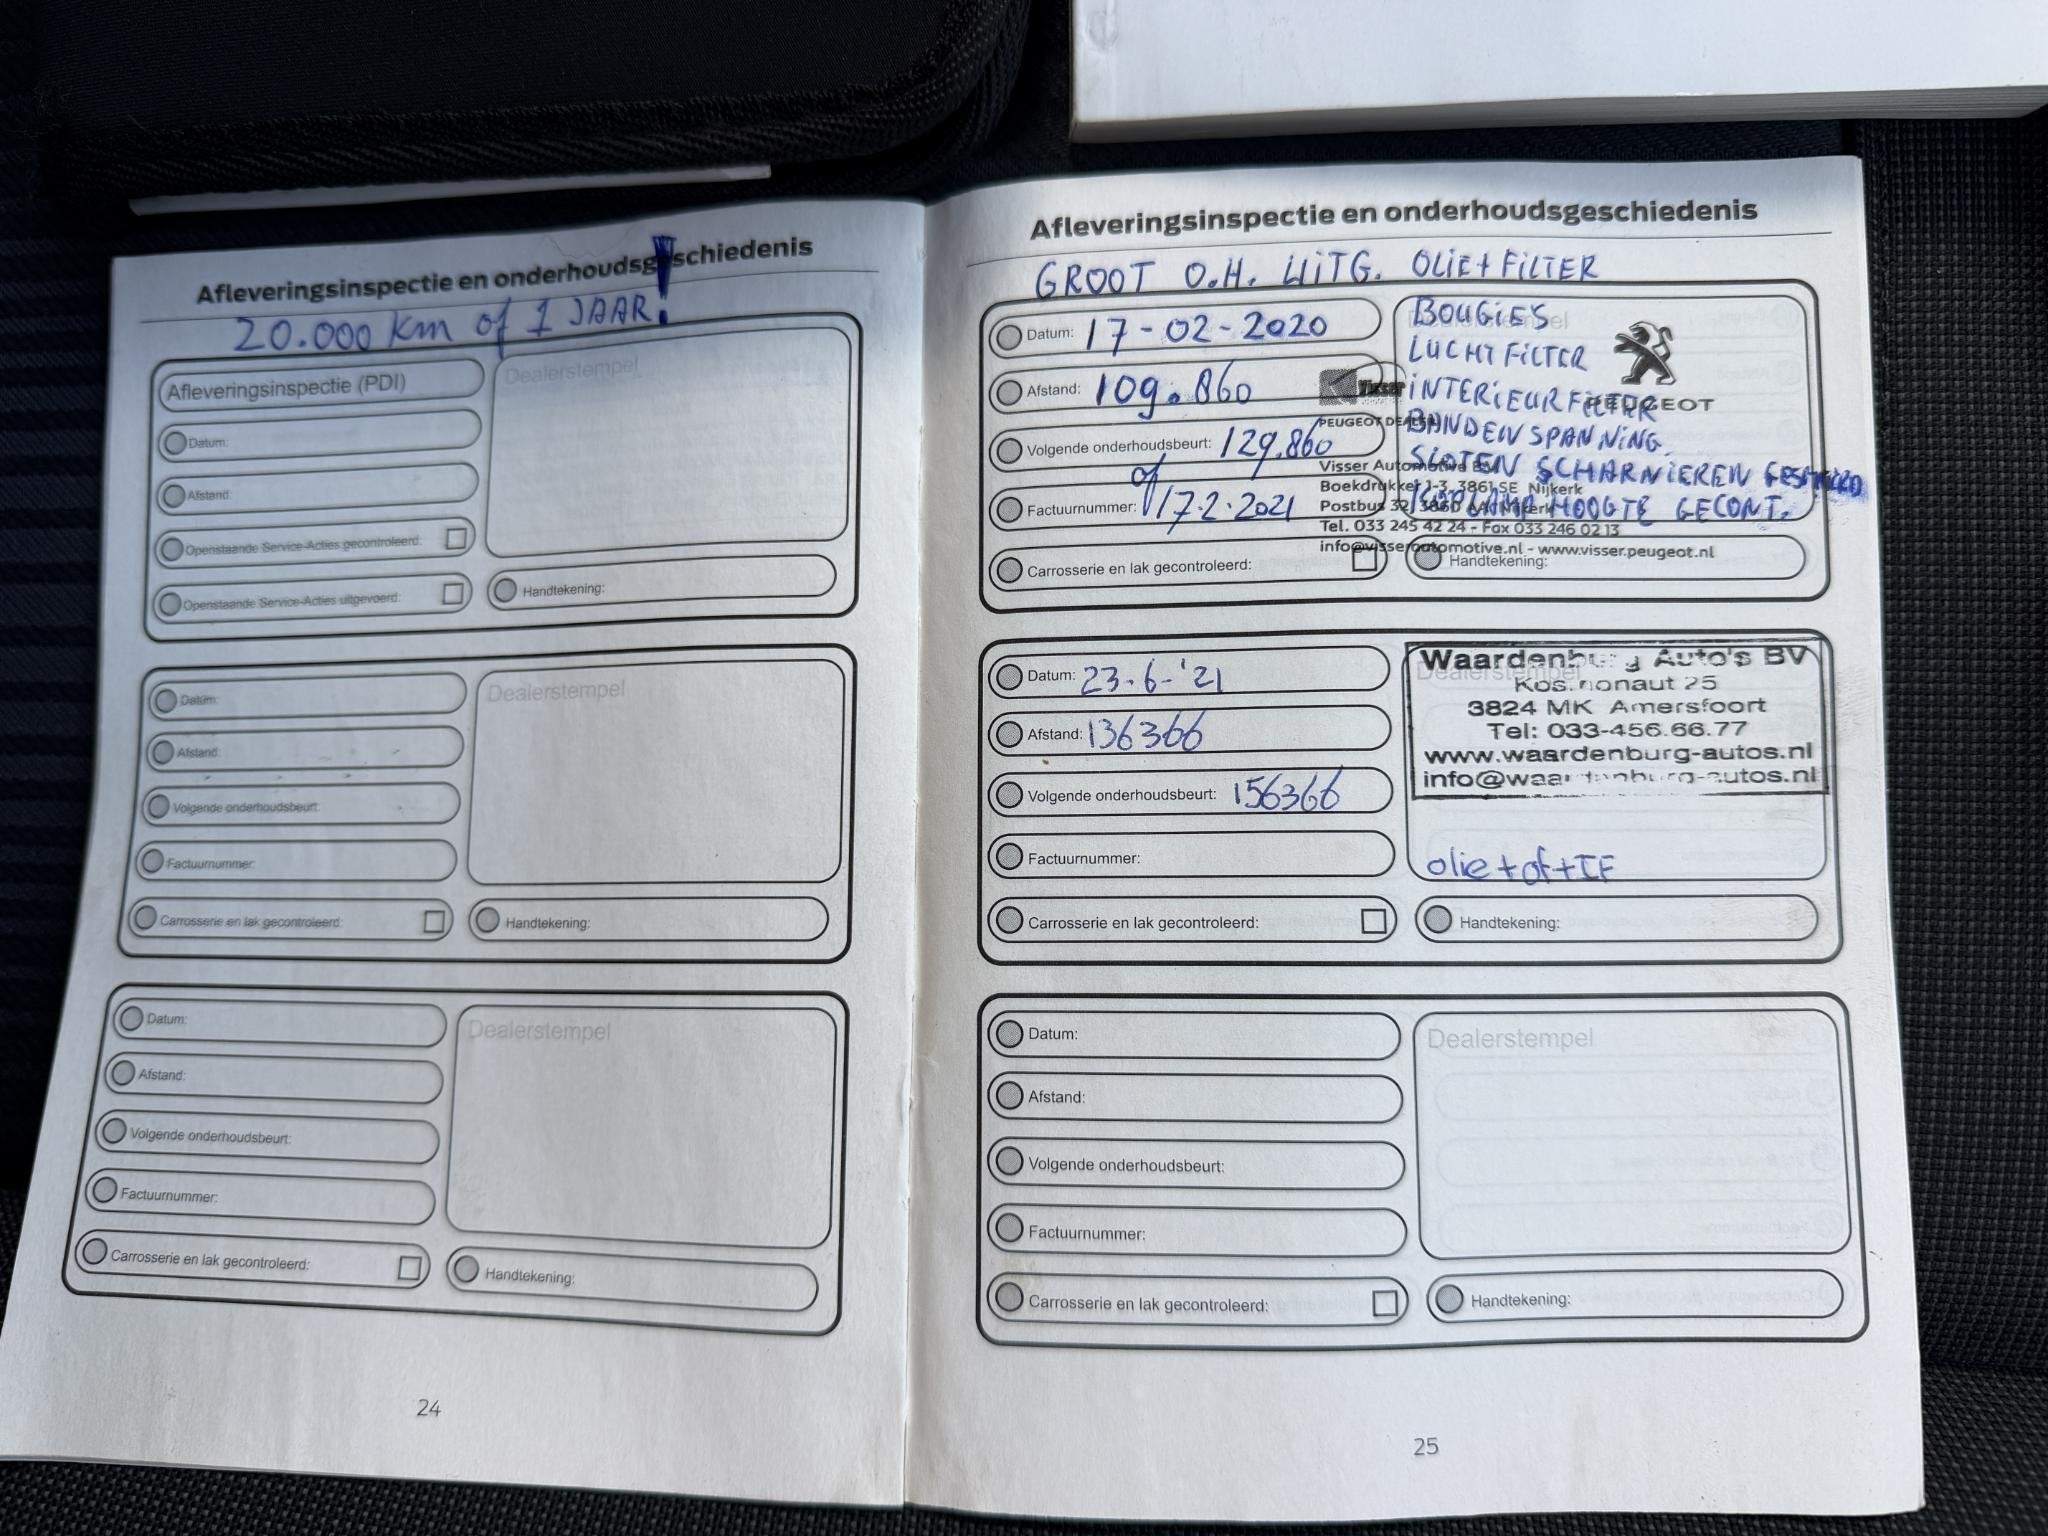 Afleveringsinspectie en onderhoudsgeschiedenis
20.000 km of 1 JAAR!
Afleveringsinspectie (PDI)
Datum:
Afstand:
Openstaande Service-Acties gecontroleerd:
Openstaande Service-Acties uitgevoerd:
Dealerstempel
Handtekening:
Datum:
Afstand:
Volgende onderhoudsbeurt:
Factuurnummer:
Carrosserie en lak gecontroleerd:
Dealerstempel
Handtekening:
Datum:
Afstand:
Volgende onderhoudsbeurt:
Factuurnummer:
Carrosserie en lak gecontroleerd:
Dealerstempel
Handtekening:
24
Afleveringsinspectie en onderhoudsgeschiedenis
GROOT O.H. UITG. OLIE+FILTER
Datum: 17-02-2020
Afstand: 109.860
Volgende onderhoudsbeurt: 129.860
of
Factuurnummer: 17-2-2021
Carrosserie en lak gecontroleerd:
BOUGIES
LUCHTFILTER
INTERIEURFILTER
BANDENSPANNING
SLOTEN SCHARNIEREN GESMEERD
KOPLAMP HOOGTE GECONT.
Visser
PEUGEOT
PEUGEOT DEALER
Visser Automotive BV
Boekdrukker 1-3, 3861 SE Nijkerk
Postbus 32, 3860 AA Nijkerk
Tel. 033 245 42 24 - Fax 033 246 02 13
info@visserautomotive.nl - www.visser.peugeot.nl
Handtekening:
Datum: 23-6-'21
Afstand: 136366
Volgende onderhoudsbeurt: 156366
Factuurnummer:
Carrosserie en lak gecontroleerd:
Dealerstempel
Waardenburg Auto's BV
Kosmonaut 25
3824 MK Amersfoort
Tel: 033-456.66.77
www.waardenburg-autos.nl
info@waardenburg-autos.nl
olie+of+IF
Handtekening:
Datum:
Afstand:
Volgende onderhoudsbeurt:
Factuurnummer:
Carrosserie en lak gecontroleerd:
Dealerstempel
Handtekening:
25